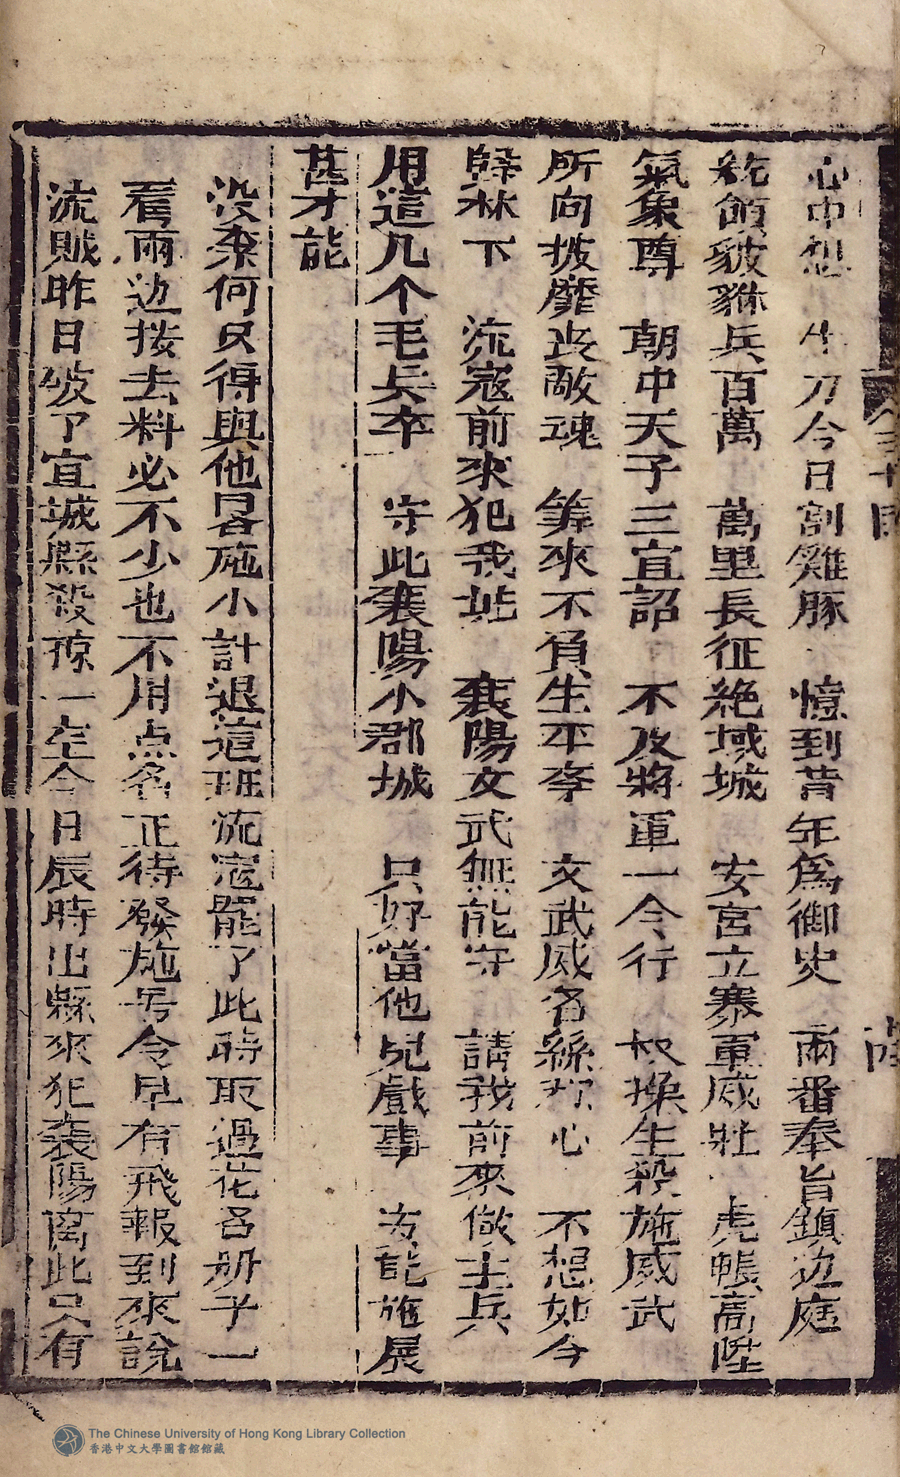 心中想　牛刀今日割雞豚　憶到昔年為御史　兩番奉旨鎮边庭
統領貔貅兵百萬　萬里長征絶域城　安宮立寨軍威壯　虎帳高陞
氣象尊　朝中天子三宣詔　不及將軍一令行　权操生殺施威武
所向披靡丧敵魂　筭來不負生平孝　文武威名絲邦心　不想如今
歸林下　流寇前來犯我地　襄陽文武無能守　請我前來做主兵
用這几个毛兵卒　守此襄陽小郡城　只好當他兒戲事　安能施展
甚才能
没柰何只得與他畧施小計退這班流寇罷了此時取過花名册子一
看兩边按去料必不少也不用点名正待發施号令早有飛報到來說
流賊昨日破了宜城縣殺掠一空今日辰時出縣來犯襄陽离此只有
The Chinese University of Hong Kong Library Collection
香港中文大學圖書館館藏